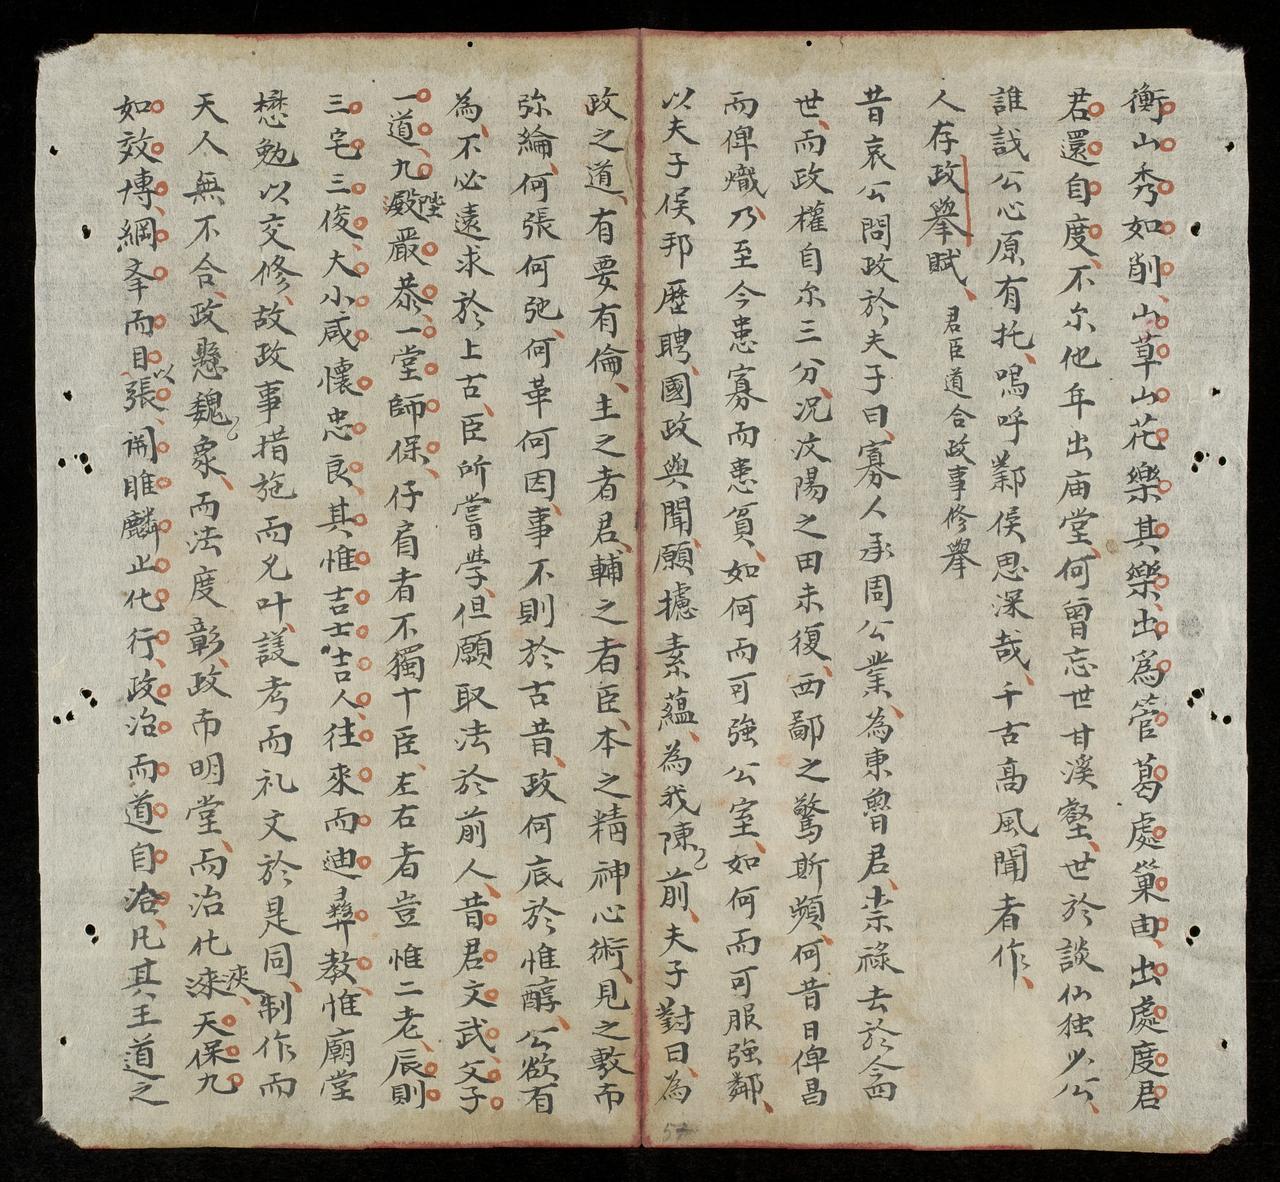 衡山秀如削山草山花樂其樂出爲管葛處巢由出處度君
君還自度不尔他年出庙堂何曾忘世甘溪壑世於談仙独少公
誰識公心原有托嗚呼鄴侯思深哉千古高風聞者作
人存政舉賦 君臣道合政事修舉
昔哀公問政於夫子曰寡人承周公業為東魯君祟祿去於今四
世而政權自尔三分况汶陽之田未復西鄙之驚斯頻何昔日俾昌
而俾熾乃至今患寡而患貧如何而可強公室如何而可服強鄰
以夫子侯邦歷聘國政與聞願攄素蘊為我陳前夫子對曰為
政之道有要有倫主之者君輔之者臣本之精神心術見之敷布
弥綸何張何弛何革何因事不則於古昔政何底於惟醇公欲有
為不必遠求於上古臣所嘗學但願取法於前人昔君文武父子
一道九殿陛嚴恭一堂師保仔肩者不獨十臣左右者豈惟二老辰則
三宅三俊大小咸懷忠良其惟吉士吉人往來而迪彝教惟廟堂
懋勉以交修故政事措施而允叶議考而礼文於是同制作而
天人無不合政懸魏象而法度彰政布明堂而治化浹天保九
如效博綱挈而目以張關睢麟止化行政治而道自洽凡其王道之